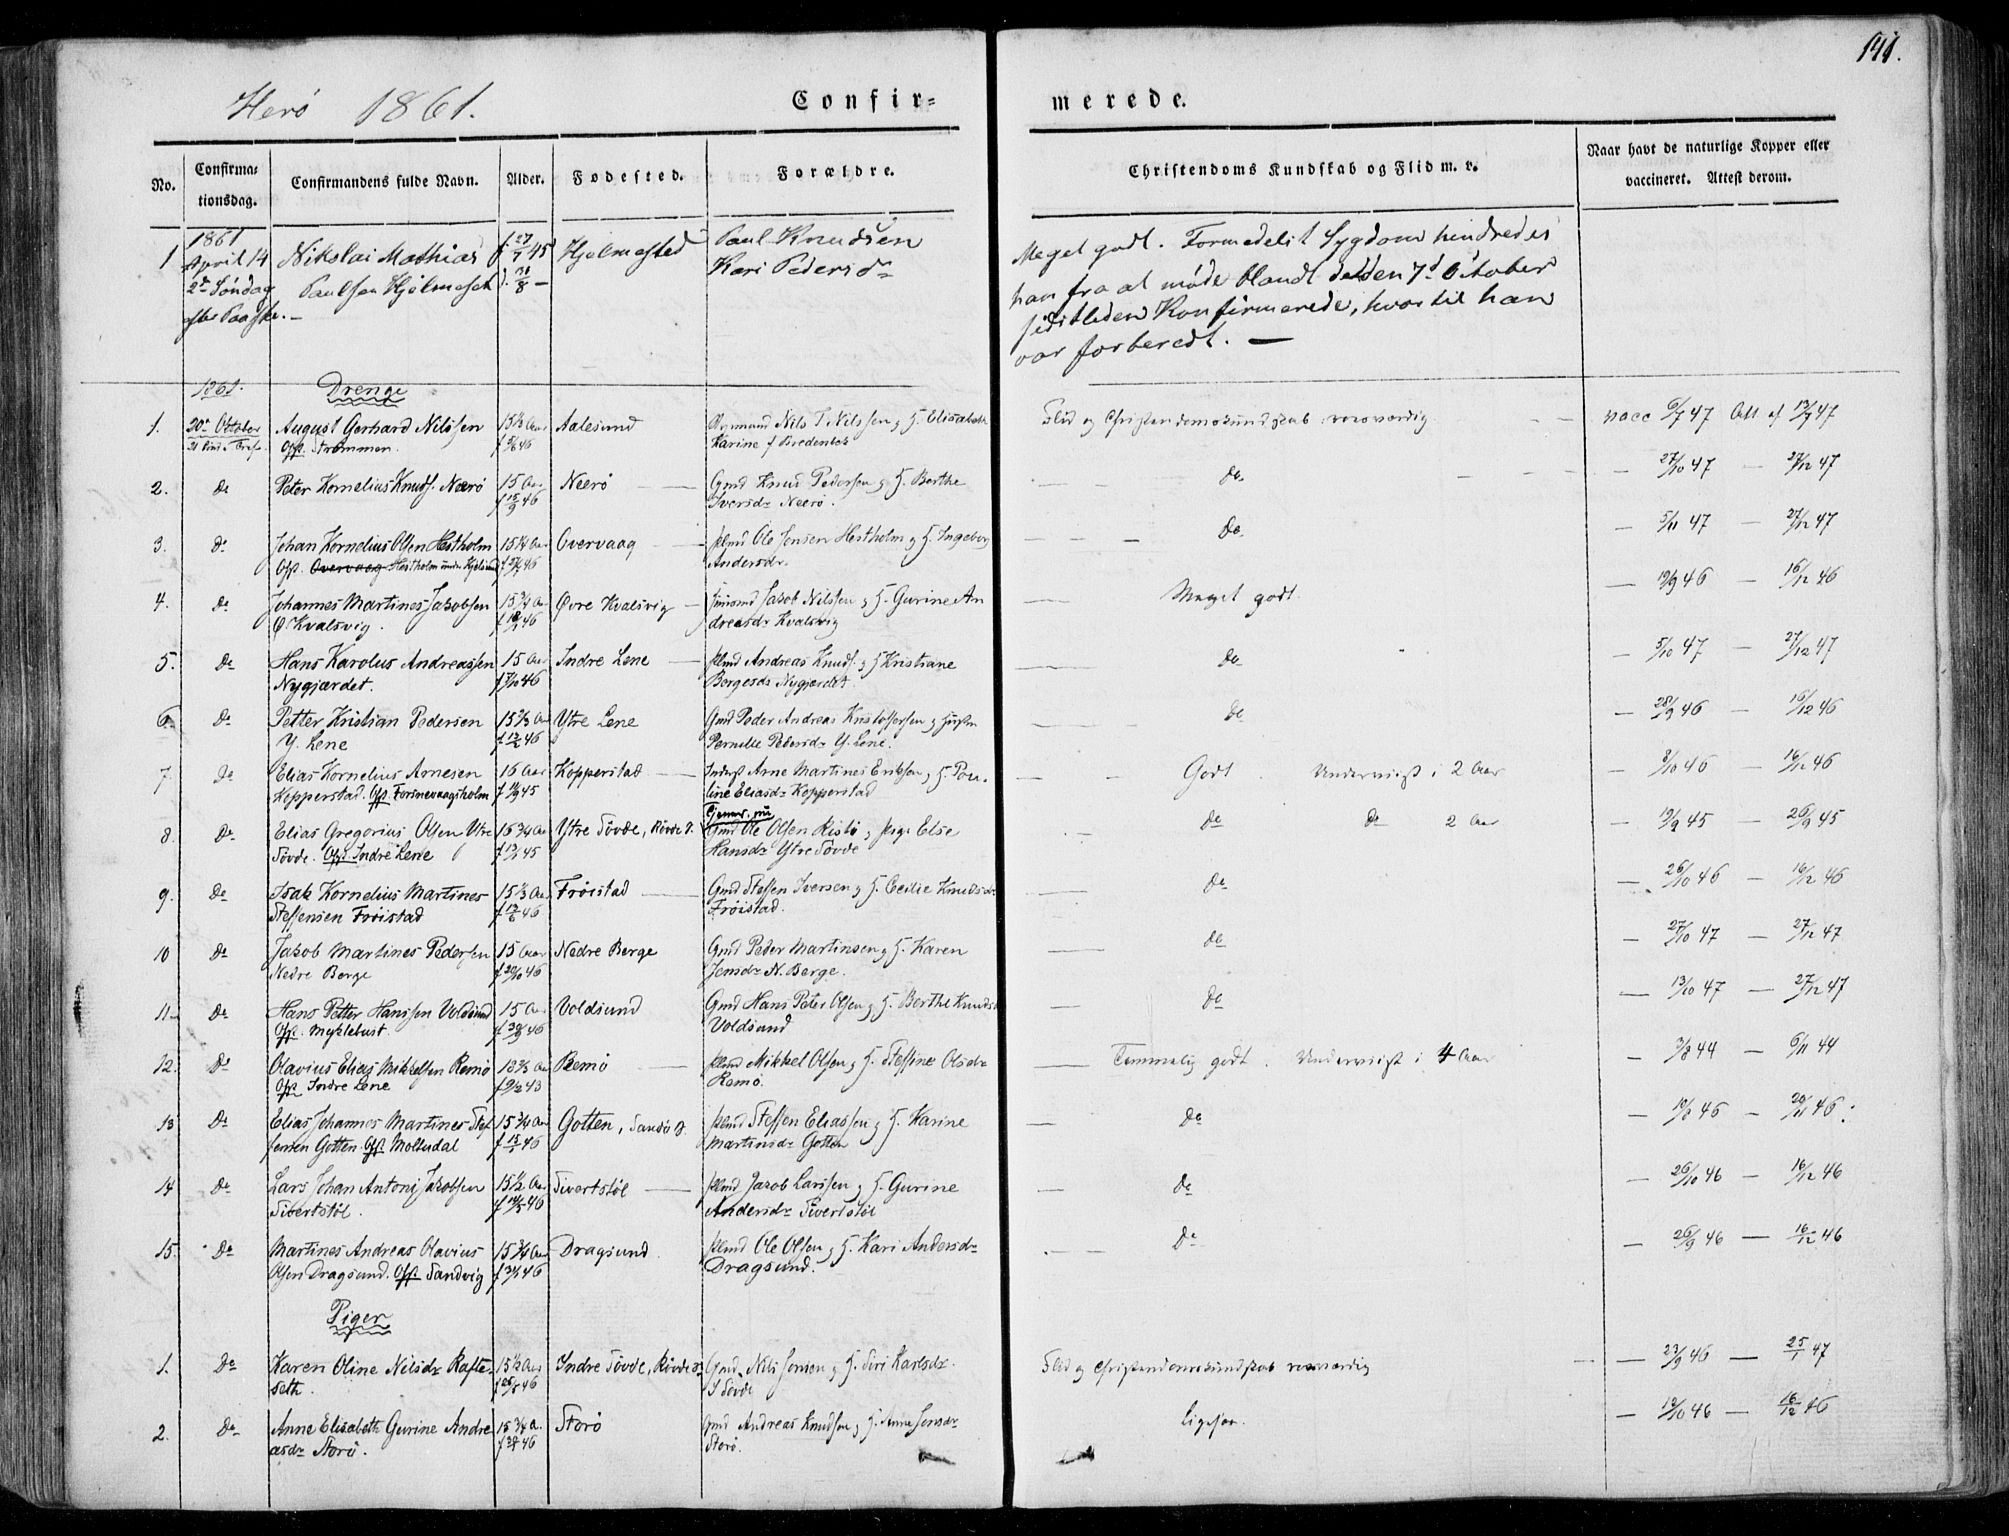 141.
Herö 1861.
Confir-
merede.
No.
Confirma-
tionsdag.
Confirmandens fulde Navn.
Alder.
Fødested.
Forældre.
Christendoms Kundskab og Flid m. v.
Naar havt de naturlige Kopper eller
vaccineret. Attest derom.
1
1861
April 14
2den Söndag
efter Paaske.
Nikolai Mathias
Paulsen Hjelmeset
f. 27/7 45
Hjelmested
Paul Knudsen
Kari Pedersdr
Meget godt. Formedelst Sygdom hindredes
han fra at møde blandt de den 7de October
sidstleden Konfirmerede, hvortil han
var forberedt. —
1861.
Drenge
1. 20de October August Gerhard Nilssen 15 1/3 Aar Aalesund Nils T Nilssen og H. Elisabeth Flid og Christendomskundskab roesværdig — vacc 6/7 47 Att af 13/7 47
Opf. Strømmen. Karine f Bredenbek
2. do Peter Kornelius Knuds. Nærö 15 Aar Neerö Gmd Knud Pedersen og H. Berthe do — 27/10 47 — 27/12 47
f 15/9 46 Iversdr Neerö.
3. do Johan Kornelius Olsen Hestholm 15 1/4 Aar Overvaag Plmd Ole Jensen Hestholm og H. Ingeborg do — 5/11 47 — 27/12 47
Opf. Overvaag Hestholm under Kjelsund Andersdr.
4. do Johannes Martines Jakobsen 15 3/4 Aar Övre Kvalsvig Jakob Nilssen og H. Gurine An Meget godt. — 19/9 46 — 16/12 46
Ö Kvalsvig. dreasdr Kvalsvig
5. do Hans Karolus Andreassen 15 Aar Indre Lene Plmd Andreas Knuds. og H Kristiane do — 5/10 47 — 27/12 47
Nygjærdet. Borgesdr Nygjærdet
6 do Petter Kristian Pedersen 15 2/3 Aar Ytre Lene Gmd Peder Andreas Kristoffersen og Hustru do — 28/9 46 — 16/12 46
Y. Lene f 12/2 46 Pernille Pedersdr Y. Lene.
7 do Elias Kornelius Arnesen 16 Aar Kopperstad Inderst Arne Martines Eriksen og H. Pou- Godt. Underviist i 2 Aar — 8/10 46 — 16/12 46
Kopperstad. Opf. Fosnevaagsholm 45 line Eliasdr Kopperstad
8. do Elias Gregorius Olsen Ytre 16 3/4 Aar Ytre Sövde, Rövde S. Gmd Ole Olsen Ristö og Pige Else do do 2 Aar — 19/9 45 — 26/9 45
Søvde. Opf. Indre Lene f 13/1 45 Hansdr Ytre Søvde
9. do Isak Kornelius Martines 15 1/3 Aar Fröistad Gmd Steffen Iversen og H. Cecilie Knudsdr do — 26/10 46 — 16/12 46
Steffensen Fröistad f 13/6 46 Fröistad.
10 do Jakob Martines Pedersen 15 Aar Nedre Berge Gmd Peder Martinsen og H. Karen do — 27/10 47 — 27/12 47
Nedre Berge f 20/10 46 Jensdr N. Berge.
11 do Hans Petter Hanssen Voldsund 15 Aar Voldsund Gmd Hans Peter Olsen og H. Berthe Knudsd do — 13/10 47 — 27/12 47
Opf. Myklebust. f 30/9 46 Voldsund
12. do Olavius Elias Mikkelsen Remö 18 2/3 Aar Remö Plmd Mikkel Olsen og H. Steffine Olsdr Temmelig godt. Underviist i 4 Aar — 3/8 44 — 6/11 44
Opf Indre Lene 43 Remö.
13 do Elias Johannes Martines Stef 15 3/4 Aar Gotten, Sandö S. Plmd Steffen Eliassen og H. Karine do — 10/8 46 — 20/11 46
fensen Gotten. Opf. Moltudal f 13/1 46 Martinsdr Gotten
14 do Lars Johan Antoni Jakobsen 15 1/2 Aar Sivertstöl Plmd Jacob Larssen og H. Gurine do — 26/10 46 — 16/12 46
Sivertstöl. 46 Andersdr Sivertstöl
15. do Martines Andreas Olavius 15 3/4 Aar Dragsund Plmd Ole Olsen og H. Kari Andersdr do — 26/9 46 — 16/12 46
Olsen Dragsund. Opf. Sandvig 46 Dragsund.
Piger
1. do Karen Oline Nilsdr Rafte 15 1/2 Aar Indre Søvde, Rövde S. Gmd Nils Jensen og H. Siri Karlsdr. Flid og Christendomskundskab roesværdig — 23/9 46 — 25/1 47
seth. 46 I Søvde
2. do Anne Elisabeth Gurine Andre 15 3/4 A. Storö Gmd Andreas Knudsen og H. Anne Jensdr ligesaa. — 19/10 46 — 16/12 46
asdr Storö. 46 Storö.